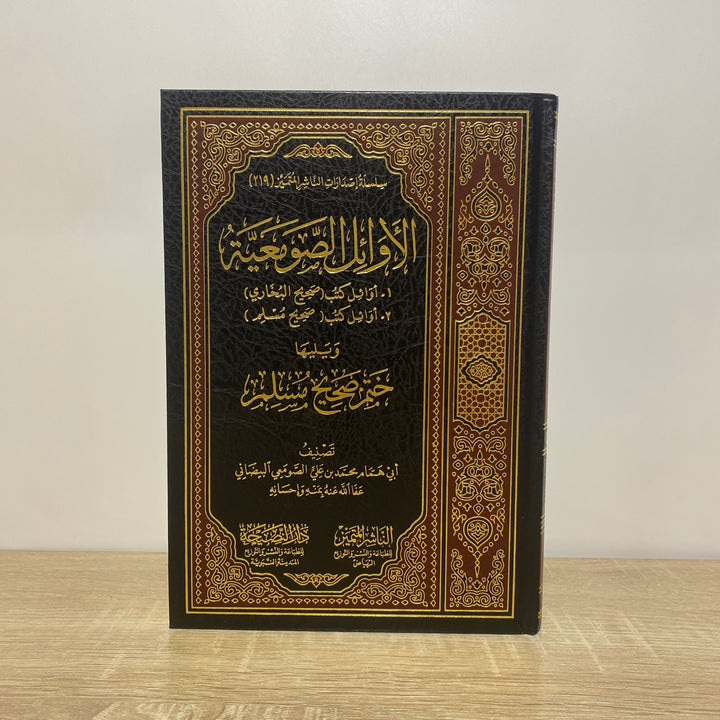 سلسلة إصدارات الناشر المتميز (٢١٩)
الأوائل الصومعية
١- أوائل كتب (صحيح البخاري)
٢- أوائل كتب (صحيح مسلم)
ويليها
ختم صحيح مسلم
تصنيف
أبي همام محمد بن علي الصومعي البيضاني
عفا الله عنه بمنه وإحسانه
الناشر المتميز
للطباعة والنشر والتوزيع
الرياض
دار النصيحة
للطباعة والنشر والتوزيع
المدينة النبوية